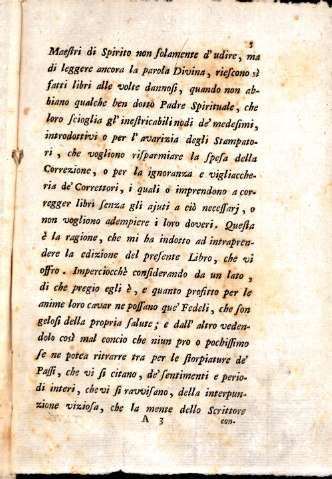 5
Maestri di Spirito non solamente d'udire, ma
di leggere ancora la parola Divina, riescono sì
fatti libri alle volte dannosi, quando non ab-
biano qualche ben dotto Padre Spirituale, che
loro scioglia gl'inestricabili nodi de' medesimi,
introdottivi o per l'avarizia degli Stampato-
ri, che vogliono risparmiare la spesa della
Correzione, o per la ignoranza e vigliacche-
ria de' Correttori, i quali o imprendono a cor-
regger libri senza gli ajuti a ciò necessarj, o
non vogliono adempiere i loro doveri. Questa
è la ragione, che mi ha indotto ad intrapren-
dere la edizione del presente Libro, che vi
offro. Imperciocchè considerando da un lato,
di che pregio egli è, e quanto profitto per le
anime loro cavar ne possano que' Fedeli, che son
gelosi della propria salute; e dall'altro veden-
dolo così mal concio che niun pro o pochissimo
se ne potea ritrarre tra per le storpiature de'
Passi, che vi si citano, de' sentimenti e perio-
di interi, che vi si ravvisano, della interpun-
zione viziosa, che la mente dello Scrittore
A 3
con-